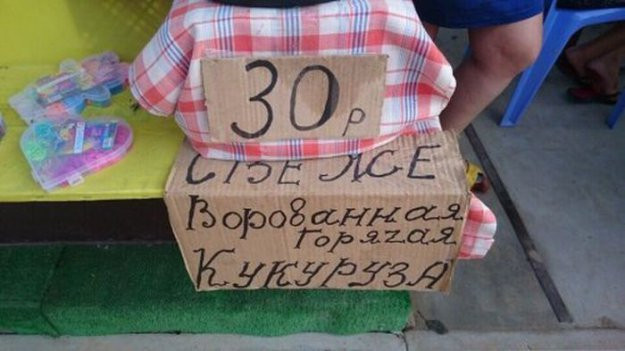 30р
СВЕЖЕ
Ворованная
Горячая
Кукуруза